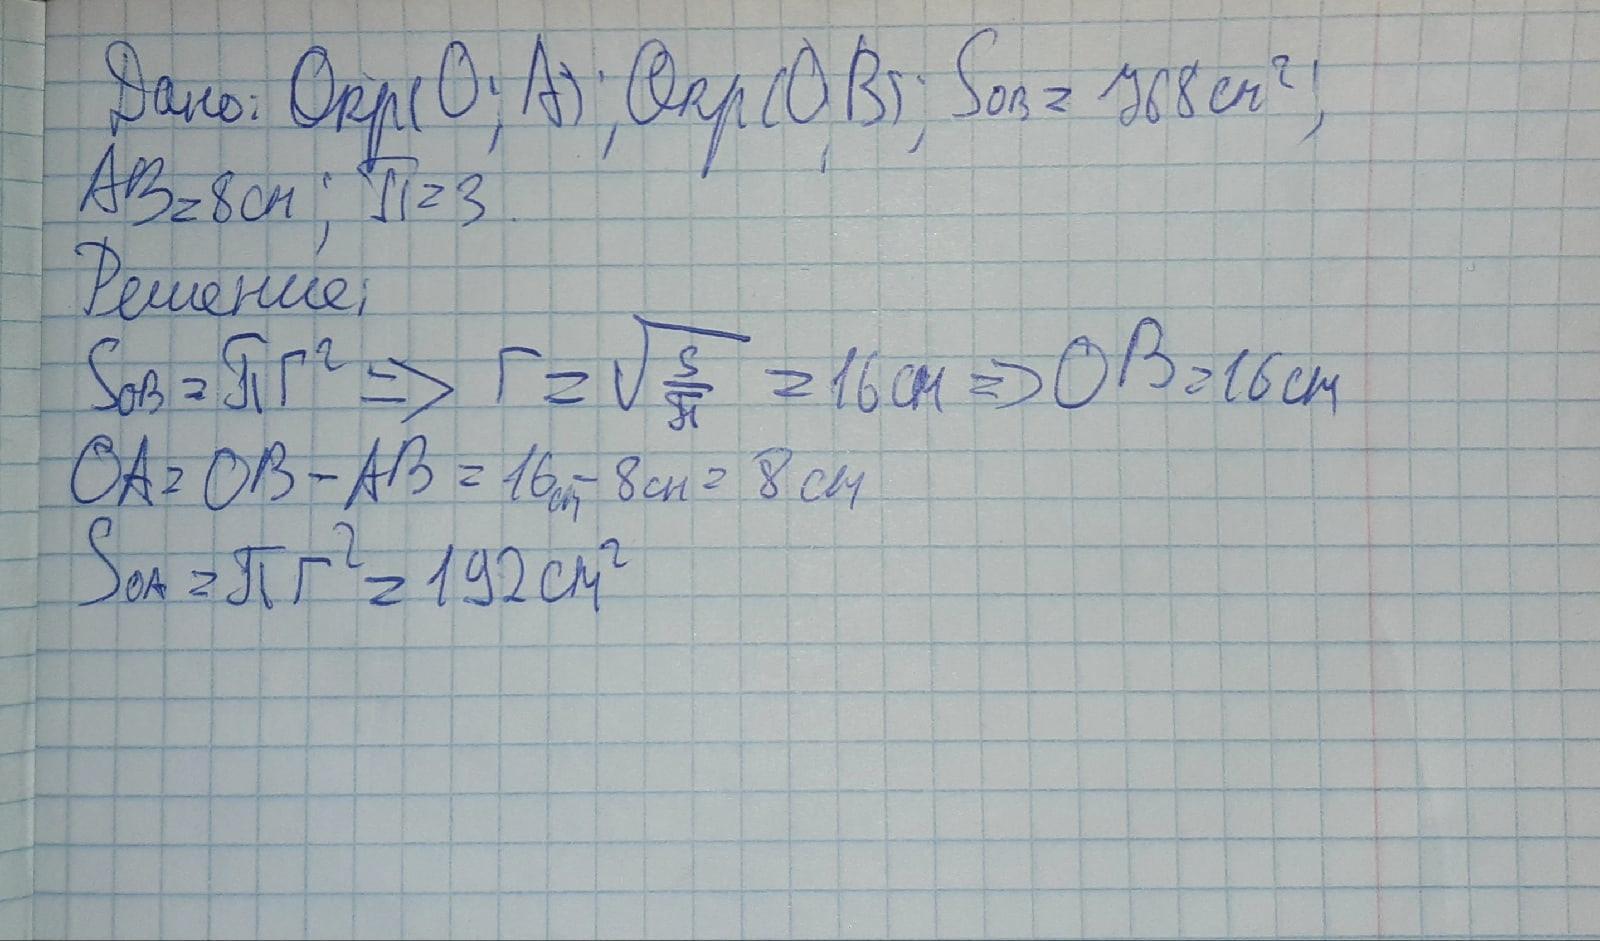 Дано: Окр(О; А); Окр(О; В); Sов = 768 см²;
АВ = 8 см; π = 3.
Решение:
Sов = πr² => r = √(S/π) = 16 см => ОВ = 16 см
ОА = ОВ - АВ = 16 см - 8 см = 8 см
Sоа = πr² = 192 см²